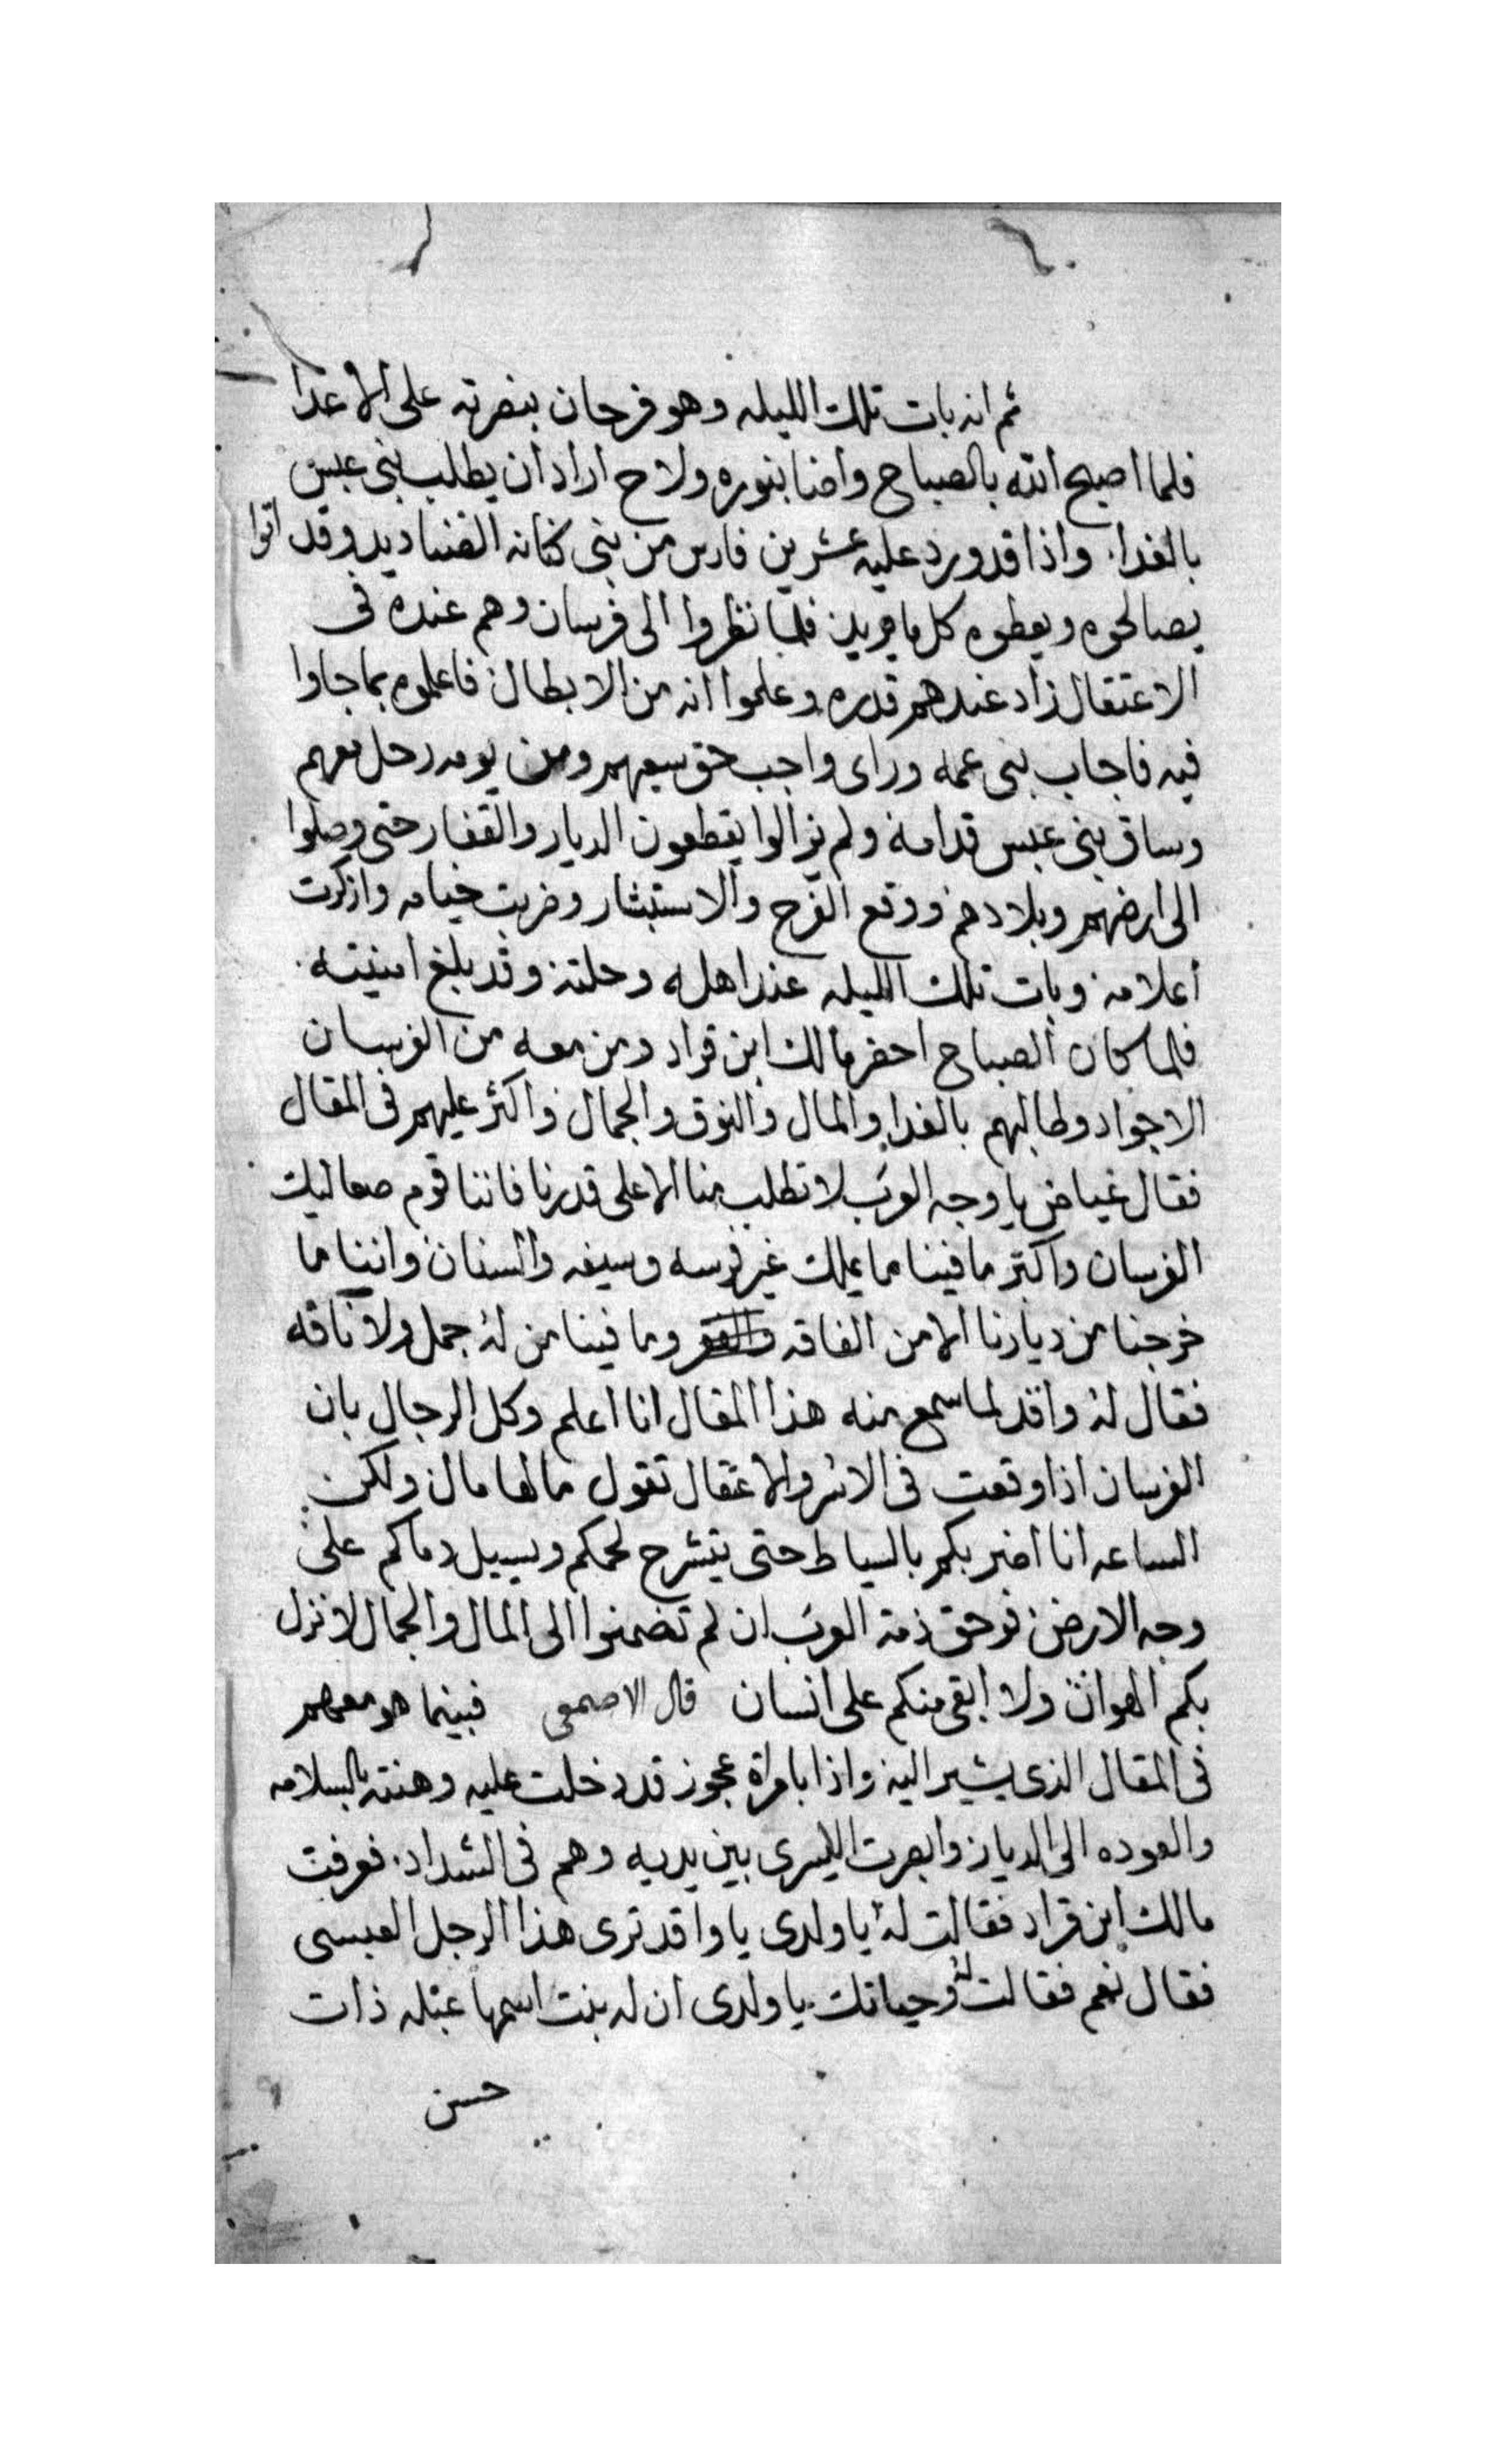 ثم انه بات تلك الليله وهو فرحان بنصرته على الاعدا
فلما اصبح الله بالصباح واضا بنوره ولاح اراد ان يطلب بنى عبس
بالفدا واذا قد ورد عليه عشرين فارس من بنى كنانه الصناديد وقد اتوا
يصالحوه ويعطوه كل ما يريد فلما نظروا الى فرسان وهم عنده فى
الاعتقال زاد عندهم قدره وعلموا انه من الابطال فاعلموه بما جاوا
فيه فاجاب بنى عمه وراى واجب حق سعيهم ومن يومه رحل معهم
وساق بنى عبس قدامه ولم يزالوا يقطعون الديار والقفار حتى وصلوا
الى ارضهم وبلادهم ووقع الفرح والاستبشار وضربت خيامه وازكرت
أعلامه وبات تلك الليله عند اهله وحلته وقد بلغ امنيته
فلما كان الصباح احضر مالك ابن قراد ومن معه من الفرسان
الاجواد وطالبهم بالفدا والمال والنوق والجمال واكثر عليهم فى المقال
فقال غياض يا وجه العرب لا تطلب منا الا على قدرنا فاننا قوم صعاليك
الفرسان واكثر ما فينا ما يملك غير فرسه وسيفه والسنان واننا ما
خرجنا من ديارنا الا من الفاقه والفقر وما فينا من له جمل ولا ناقه
فقال له واقد لما سمع منه هذا المقال انا اعلم وكل الرجال بان
الفرسان اذا وقعت فى الاسر والاعتقال تقول ما لها مال ولكن
الساعه انا اضربكم بالسياط حتى يتشرح لحمكم ويسيل دماكم على
وجه الارض فوحق ذمة العرب ان لم تضمنوا الى المال والجمال لانزل
بكم الهوان ولا ابقى منكم على انسان قال الاصمعى فبينما هو معهم
فى المقال الذى يشير اليه واذا بامراة عجوز قد دخلت عليه وهنته بالسلامه
والعوده الى الديار وابصرت اليسرى بين يديه وهم فى الشداد فعرفت
مالك ابن قراد فقالت له يا ولدى يا واقد ترى هذا الرجل العبسى
فقال نعم فقالت له وحياتك يا ولدى ان له بنت اسمها عبله ذات
حسن